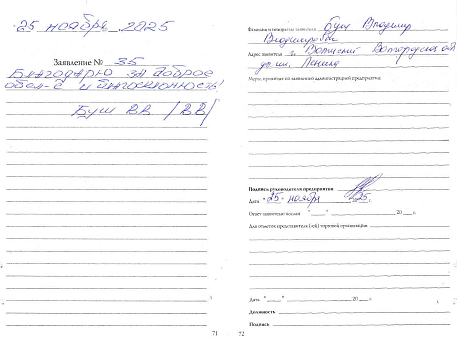 25 ноября 2025
Заявление № 35
Благодарю за доброе
обсл-е и благосклонность!
Буш ВВ /ВВ/
71
Фамилия и инициалы заявителя Буш Владимир
Адрес заявителя г. Волжский Волгоградская обл
Ленина
Меры, принятые по заявлению администрацией предприятия:
Подпись руководителя предприятия
Дата "25" ноября 2025 г.
Ответ заявителю послан "___" 20 г.
Для отметок представителя (-ей) торговой организации
Дата "___" 20 г.
Должность
Подпись
72